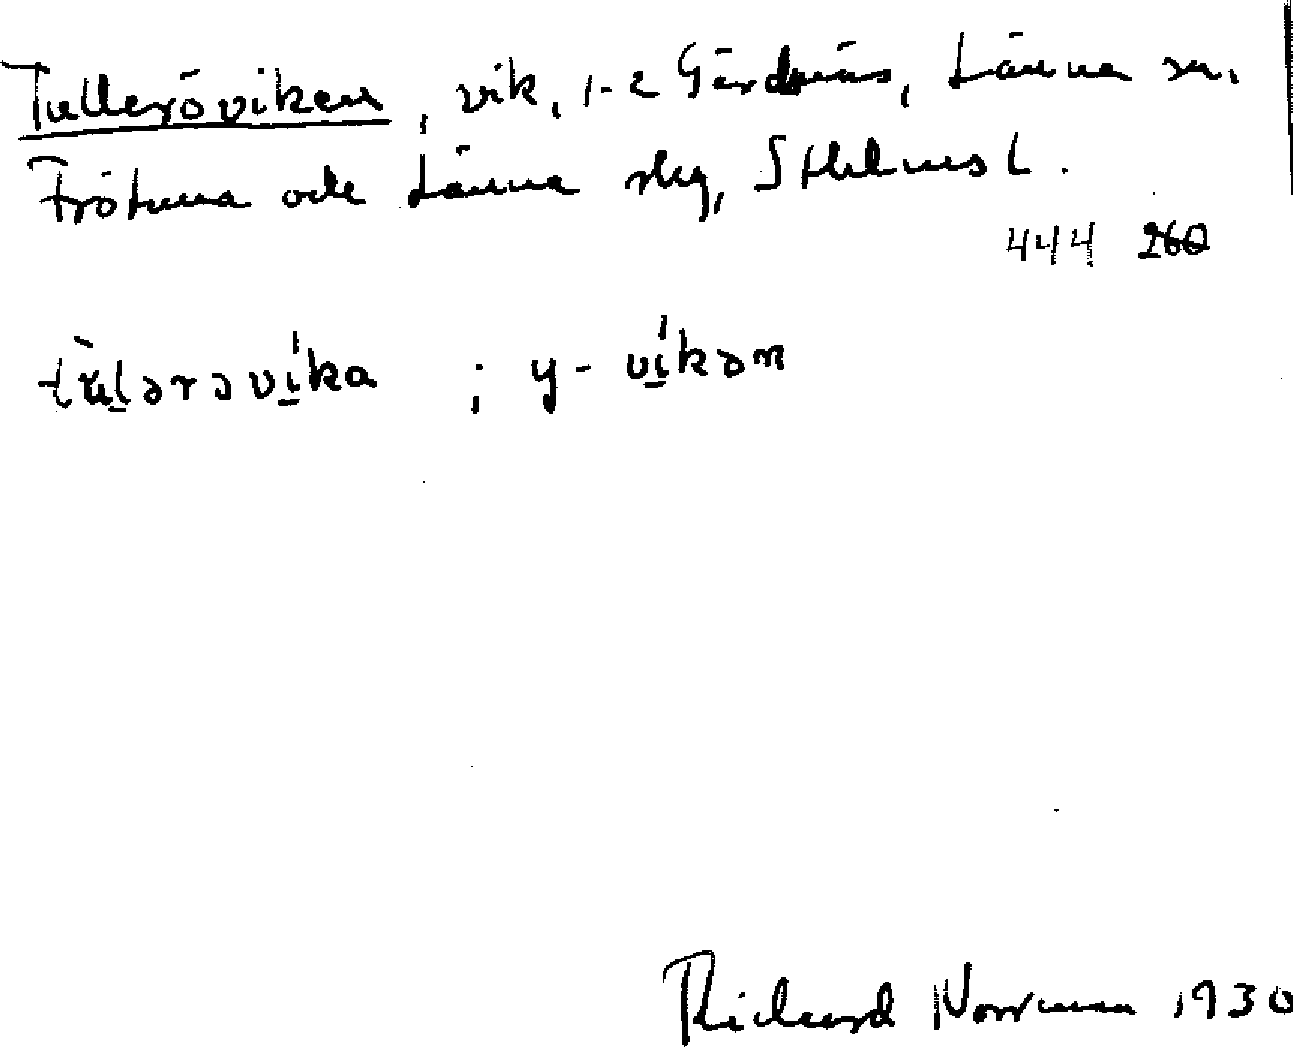 Tulleröviken, vik, 1-2 Gärdsnäs, Länna sn.
Frötuna och Länna skg, Sthlms l.
444 260
tùlərəvíka ; y- víkən
Richard Norrman 1930